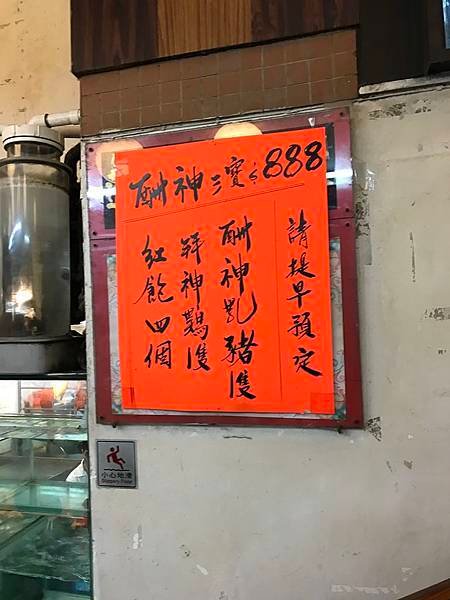 酬神三寶$888
請提早預定
酬神乳豬隻
拜神鷄隻
紅飽四個
小心地滑
Slippery Floor